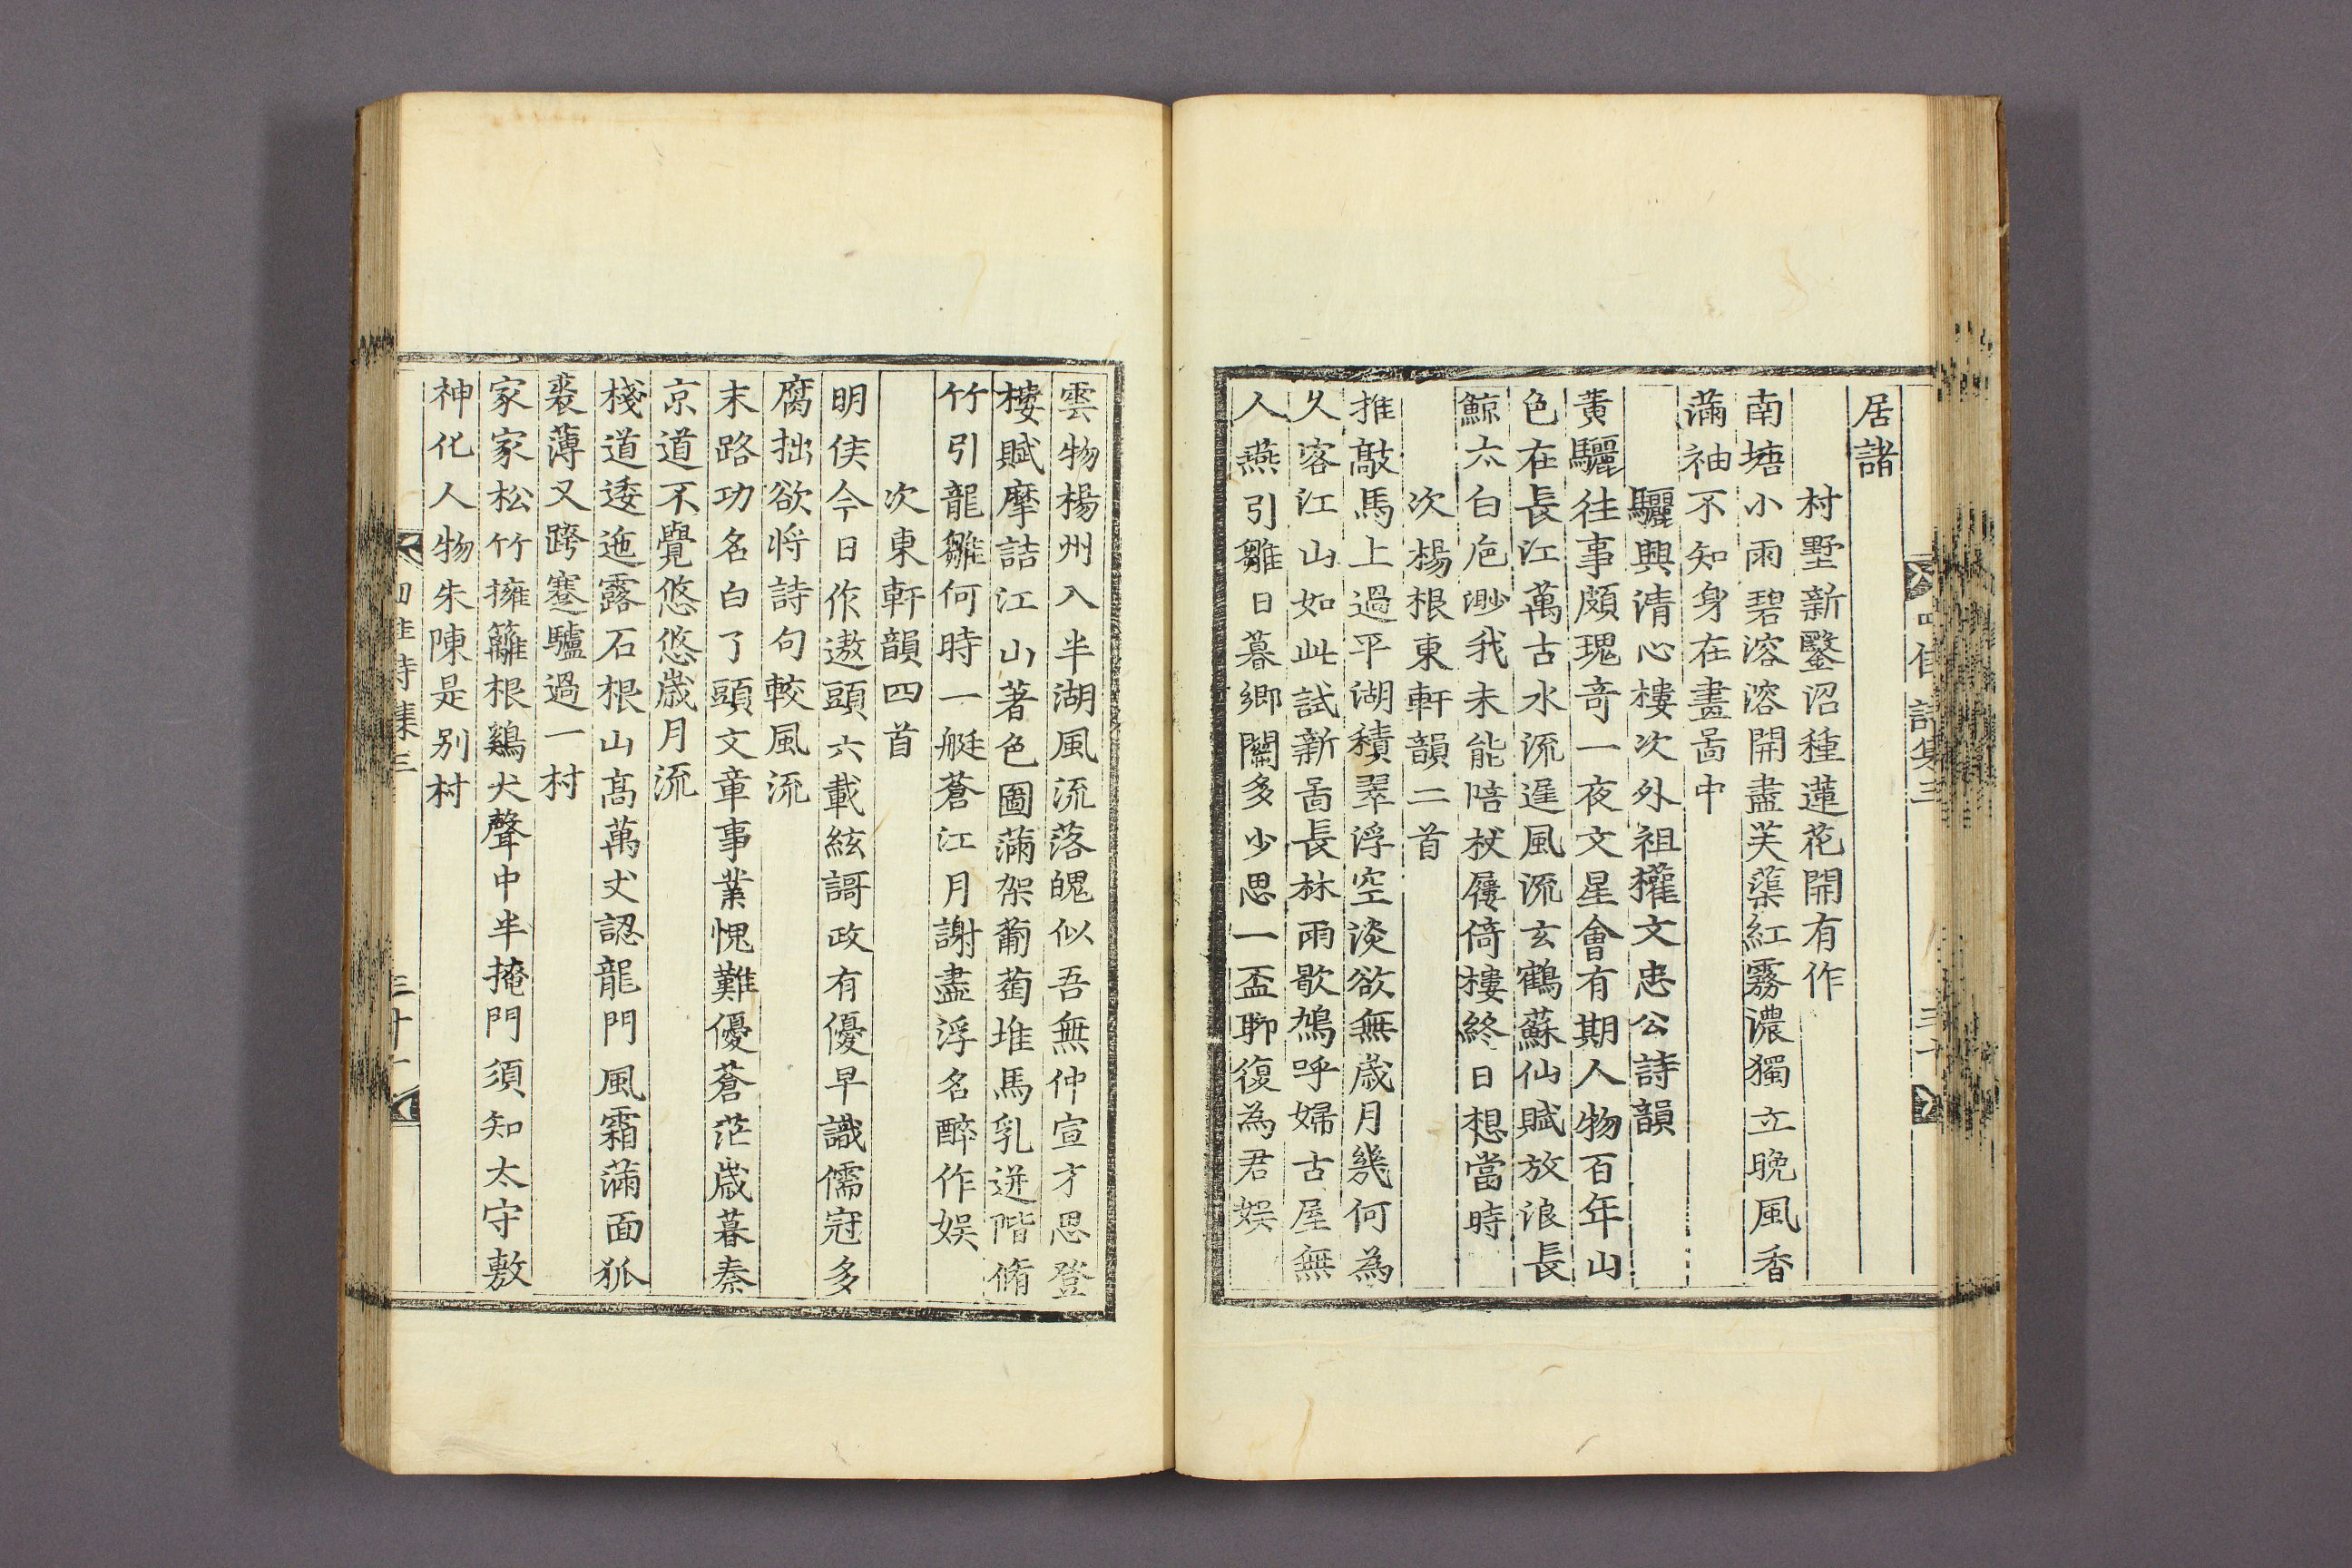 居諸
村墅新鑿沼種蓮花開有作
南塘小雨碧溶溶開盡芙蕖紅霧濃獨立晩風香
滿袖不知身在畫啚中
驪興清心樓次外祖權文忠公詩韻
黄驪往事頗瑰竒一夜文星會有期人物百年山
色在長江萬古水流遲風流玄鶴蘇仙賦放浪長
鯨太白巵渺我未能陪杖屨倚樓終日想當時
次楊根東軒韻二首
推敲馬上過平湖積翠浮空淡欲無歲月幾何為
久客江山如此試新啚長林雨歇鳩呼婦古屋無
人燕引雛日暮鄉關多少思一盃聊復為君娱
四佳詩集三
三十
雲物楊州入半湖風流落魄似吾無仲宣才思登
樓賦摩詰江山著色圖滿架葡萄堆馬乳迸階脩
竹引龍雛何時一艇蒼江月謝盡浮名醉作娱
次東軒韻四首
明侯今日作遨頭六載絃謌政有優早識儒冠多
腐拙欲將詩句較風流
末路功名白了頭文章事業愧難優蒼茫歲暮秦
京道不覺悠悠歲月流
棧道逶迤露石根山髙萬丈認龍門風霜滿面狐
裘薄又跨蹇驢過一村
家家松竹擁籬根鷄犬聲中半掩門須知太守敷
神化人物朱陳是别村
四佳詩集三
三十一